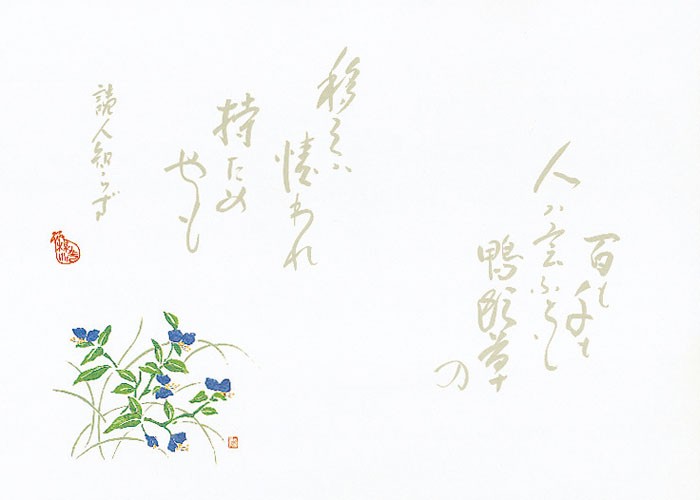 百に千に
人は言ふとも
鴨頭草
の
移ろふ
情われ
持ため
やも
読人知らず